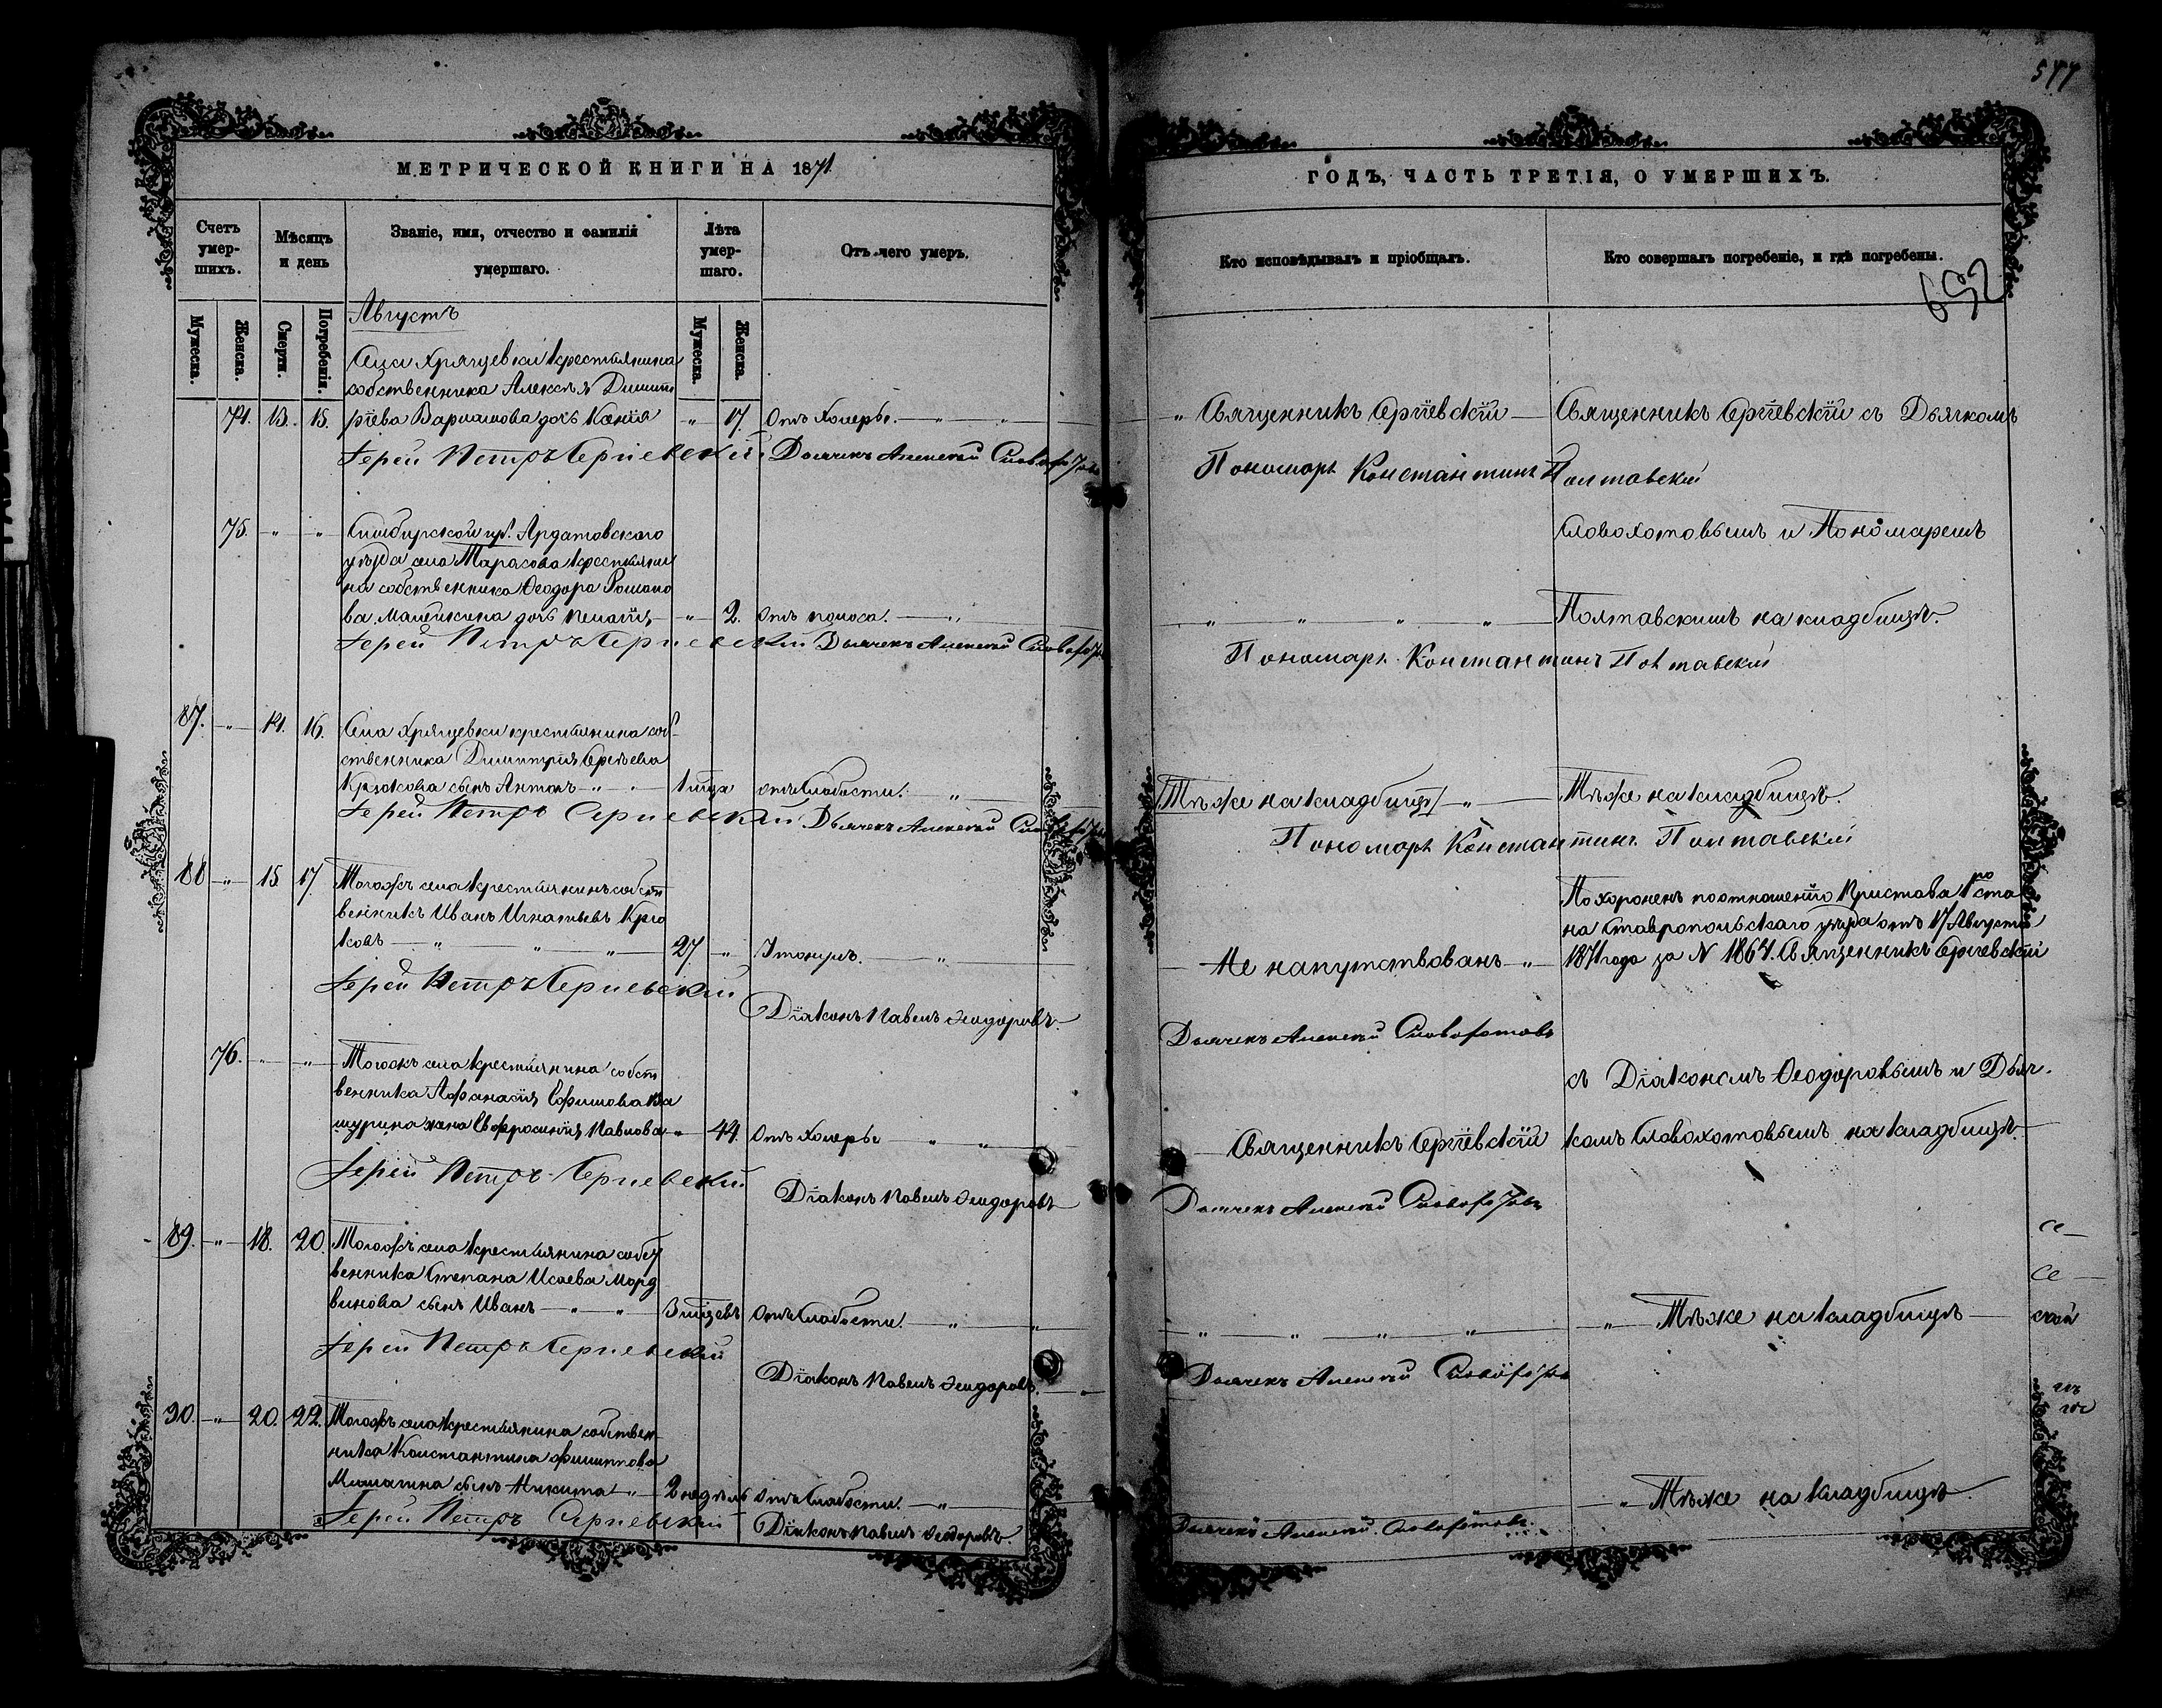 577
МЕТРИЧЕСКОЙ КНИГИ НА 1871
Счетъ умер-шихъ.
Мѣсяцъ и день
Званіе, имя, отчество и фамилія умершаго.
Лѣта умер-шаго.
Отъ чего умеръ.
Мужеска.
Женска.
Смерти.
Погребенія.
Мужеска.
Женска.
Августъ
Села Хрящевки крестьянина
собственника Алексѣя Димит
74. 13. 15. ріева Варламова дочь Ксенія " 17. Отъ холеры. " "
Іерей Петръ Сергіевскій Дьячекъ Алексѣй Словохотовъ
75. " " Симбирской губ. Ардатовскаго
уѣзда села Тарасова крестьяни
на собственника Ѳеодора Романо
ва дочь Пелагія " 2. Отъ поноса. "
Іерей Петръ Сергіевскій Дьячекъ Алексѣй Словохотовъ
87. " 14. 16. Села Хрящевки крестьянина соб
ственника Димитрія Сергѣева
Крюкова сынъ Антонъ " " 1 мѣсяца отъ слабости. "
Іерей Петръ Сергіевскій Дьячекъ Алексѣй Словохотовъ
88 " 15 17. Тогожъ села крестьянинъ собст
венникъ Иванъ Игнатьевъ Крю
ковъ " " " 27 " Утонулъ. "
Іерей Петръ Сергіевскій
Діаконъ Павелъ Ѳеодоровъ.
76. " " Тогожъ села крестьянина собст
венника Афанасія Ефимова
жена Евфросинія Павлова " 44. Отъ холеры " "
Іерей Петръ Сергіевскій
Діаконъ Павелъ Ѳеодоровъ
89. " 18. 20. Тогожъ села крестьянина собст
венника Степана Исаева Морд
винова сынъ Иванъ " " 3 мѣсяцевъ Отъ слабости. " "
Іерей Петръ Сергіевскій
Діаконъ Павелъ Ѳеодоровъ.
90. " 20. 22. Тогожъ села крестьянина собствен
ника Константина Филиппова
сынъ Никита " 2 недѣль Отъ слабости. "
Іерей Петръ Сергіевскій Діаконъ Павелъ Ѳеодоровъ.
ГОДЪ, ЧАСТЬ ТРЕТІЯ, О УМЕРШИХЪ.
Кто исповѣдывалъ и пріобщалъ.
Кто совершалъ погребеніе, и гдѣ погребены.
652
" Священникъ Сергіевскій Священникъ Сергіевскій съ Дьячкомъ
Пономарь Константинъ Полтавскій
Словохотовымъ и Пономаремъ
" " " " Полтавскимъ на кладбищѣ.
Пономарь Константинъ Полтавскій
Тѣже на кладбищѣ " Тѣже на кладбищѣ.
Пономарь Константинъ Полтавскій
Похороненъ по отношенію Пристава 1го ста
на Ставропольскаго уѣзда отъ 17 Августа
Не напутствованъ " 1871 года за N 1864. Священникъ Сергіевскій
Дьячекъ Алексѣй Словохотовъ
съ Діакономъ Ѳеодоровымъ и Дьяч
Священникъ Сергіевскій комъ Словохотовымъ на кладбищѣ.
Дьячекъ Алексѣй Словохотовъ
" " " " " Тѣже на кладбищѣ
Дьячекъ Алексѣй Словохотовъ
" Тѣже на кладбищѣ
Дьячекъ Алексѣй Словохотовъ.